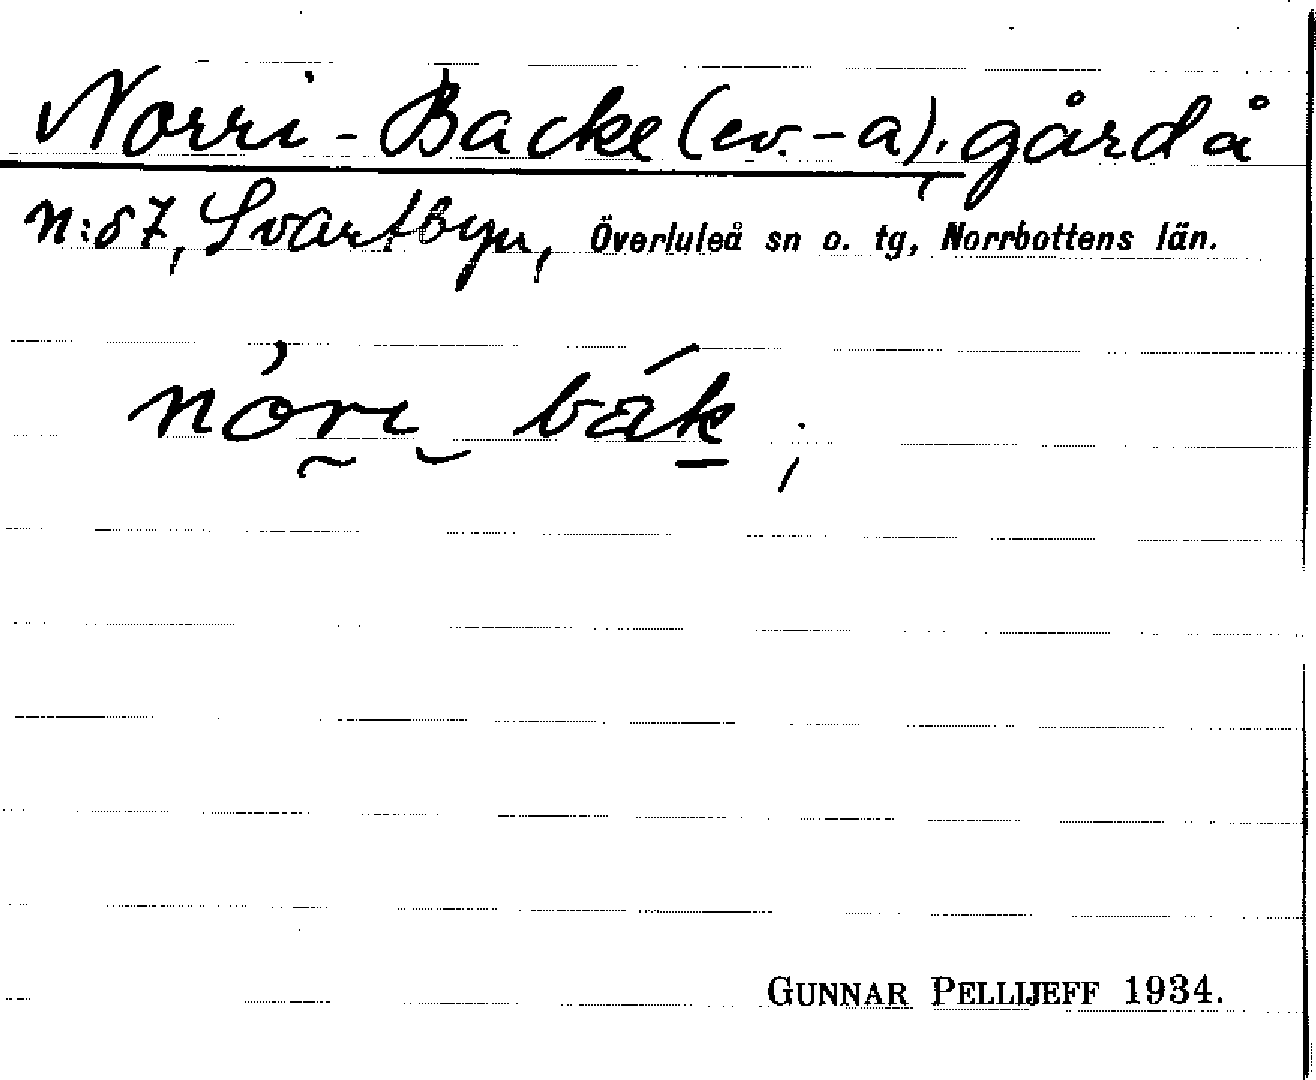 Norri-Backe (ev.-a); gård å
n:o 7, Svartbyn, Överluleå sn o. tg, Norrbottens län.
nòri bák ;
GUNNAR PELLIJEFF 1934.